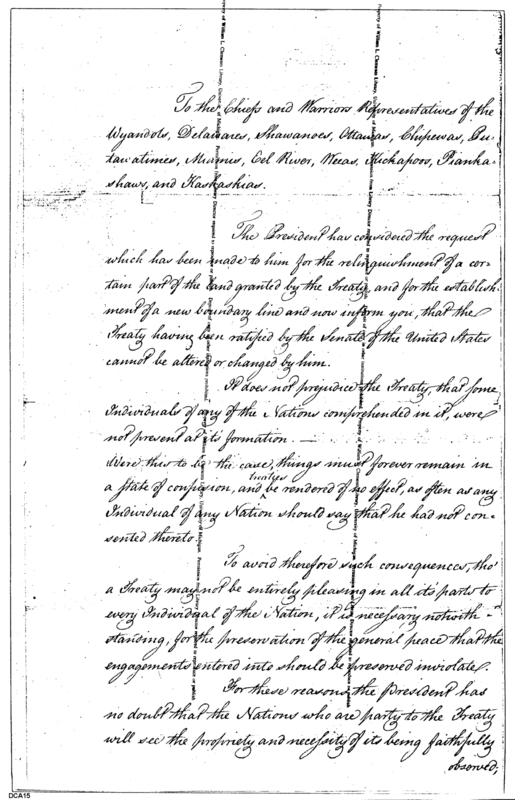 To the Chiefs and Warriors Representatives of the
Wyandots, Delawares, Shawanoes, Ottawas, Chipewas, Pu-
tawatimes, Miamis, Eel River, Weeas, Kickapoos, Pianka-
shaws, and Kaskaskias.
The President has considered the request
which has been made to him for the relinquishment of a cer-
tain part of the land granted by the Treaty, and for the establish-
ment of a new boundary line and now inform you, that the
Treaty having been ratified by the Senate of the United States
cannot be altered or changed by him.
It does not prejudice the Treaty, that some
Individuals of any of the Nations comprehended in it, were
not present at its formation. —
Were this to be the case, things must forever remain in
a state of confusion, and treaties be rendered of no effect, as often as any
Individual of any Nation should say that he had not con-
sented thereto.
To avoid therefore such consequences, tho'
a Treaty may not be entirely pleasing in all it's parts to
every Individual of the Nation, it is necessary notwith-
standing, for the preservation of the general peace that the
engagements entered into should be preserved inviolate.
For these reasons the President has
no doubt that the Nations who are party to the Treaty
will see the propriety and necessity of its being faithfully
observed;
DCA15